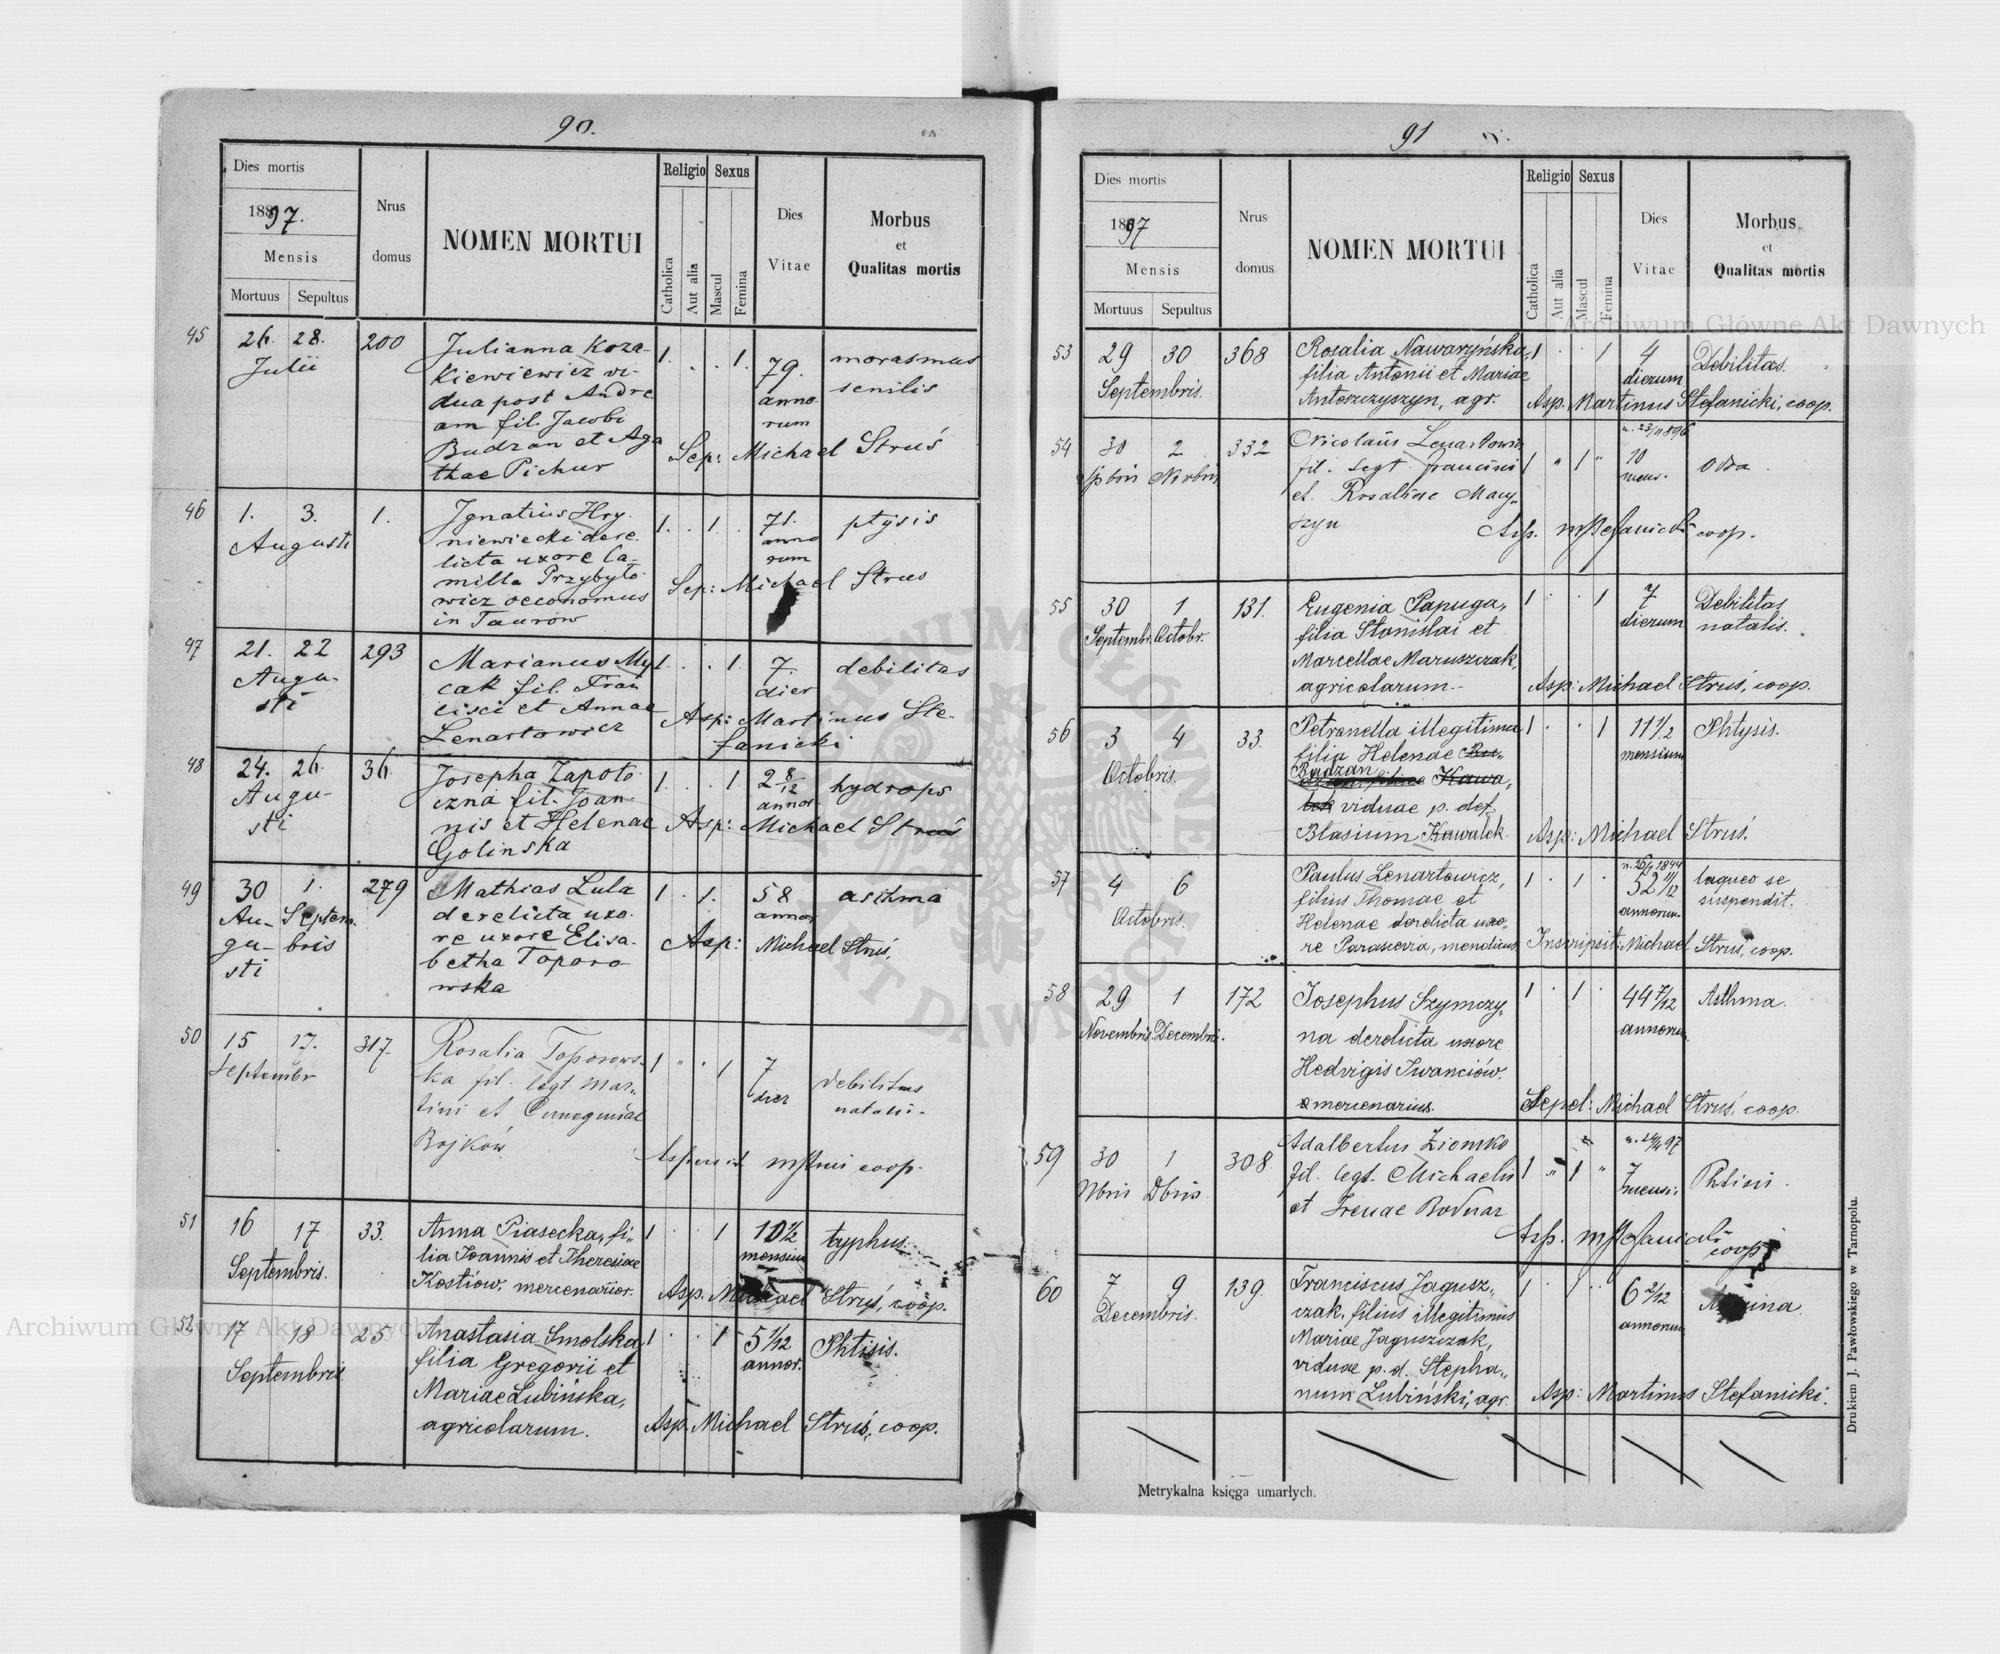 90.
Dies mortis
1897.
Mensis
Mortuus
Sepultus
Nrus
domus
NOMEN MORTUI
Religio
Catholica
Aut alia
Sexus
Mascul
Femina
Dies
Vitae
Morbus
et
Qualitas mortis
45
26. 28.
Julii
200
Julianna Koza-
kiewiewicz vi-
dua post Andre
am fil. Jacobi
Budzan et Aga
thae Pichur
1. . . 1.
79.
anno
rum
morasmus
senilis
Sep: Michael Struś
46
1. 3.
Augusti
1.
Ignatius Hry
niewiecki dere
licta uxore Ca-
milla Przybyło
wicz oeconomus
in Taurów
1. . 1. .
71.
anno
rum
ptysis
Sep: Michael Strus
47
21. 22
Augu-
sti
293
Marianus My
cak fil. Fran
cisci et Annae
Lenartowicz
1. . . 1.
7.
dier
debilitas
Asp: Martinus Ste-
fanicki
48
24. 26.
Augu-
sti
36.
Josepha Zapoto
czna fil. Joan
nis et Helenae
Golinska
1. . . 1
2 8/12
annor.
hydrops
Asp: Michael Struś
49
30 1.
Au- Septem.
gu- bris
sti
279
Mathias Lula
derelicta uxo.
re uxore Elisa.
betha Toporo
wska
1 . 1.
58
annor
asthma
Asp: Michael Struś,
50
15 17.
Septembr
317.
Rosalia Toporows-
ka fil. legt. Mar-
tini et
Bojków
1 " . 1
7
dier
debilitas
natalis.
coop.
51
16 17
Septembris.
33.
Anna Piasecka, fi-
lia Joannis et Theresiae
Kostiow, mercenarior.
1 . . 1
10 1/2
mensium
typhus.
Asp. Michael Struś, coop.
52
17 18
Septembris
25
Anastasia Smolska
filia Gregorii et
Mariae Lubińska,
agricolarum.
1 . . 1
5 1/12
annor.
Phtisis.
Asp. Michael Struś, coop.
91
Dies mortis
1897
Mensis
Mortuus
Sepultus
Nrus
domus
NOMEN MORTUI
Religio
Catholica
Aut alia
Sexus
Mascul
Femina
Dies
Vitae
Morbus
et
Qualitas mortis
53
29 30
Septembris.
368
Rosalia Nawaryńska,
filia Antonii et Mariae
Antoszczyszyn, agr.
1 . . 1
4
dierum
Debilitas.
Asp. Martinus Stefanicki, coop.
54
30 2
332
Nicolaus Lenartowicz
fil. legt. Francisci
et Rosaliae
1 " 1 "
10
mens.
Odra.
Asp. MStefanicki coop.
55
30 1
Septembr. Octobr.
131.
Eugenia Papuga,
filia Stanislai et
Marcellae Maruszczak,
agricolarum.-
1 . . 1
7
dierum
Debilitas
natalis.
Asp: Michael Struś, coop.
56
3 4
Octobris.
33.
Petronella illegitima
filia Helenae Bu-
Budzan
Kawa-
lek viduae p. def.
Blasium Kawalek
1 . . 1
11 1/2
mensium
Phtysis.
Asp: Michael Struś.
57
4 6
Octobris.
Paulus Lenartowicz,
filius Thomae et
Helenae derelicta uxo-
re Parascevia, mendicus
1 . 1 .
52 11/12
annorum
laqueo se
suspendit.
Inscripsit: Michael Struś, coop.
58
29 1
Novembris. Decembri.
172
Josephus Szymczy-
na derelicta uxore
Hedvigis Iwanciów.
mercenarius.
1 . 1 .
44 7/12
annorum.
Asthma.
Sepel: Michael Struś, coop.
59
30 1
Nbris Dbris
308
Adalbertus Ziomko
fil. legt. Michaelis
et Irenae Bodnar
1 " 1 "
7 mensi.
Phtisis.
Asp. MStefanicki
coop
60
7 9
Decembris.
139.
Franciscus Jagusz-
czak, filius illegitimus
Mariae Jaguszczak,
viduae p. d. Stepha-
num Lubiński, agr.
1 . 1 .
6 2/12
annorum
Asp: Martinus Stefanicki.
Metrykalna księga umarłych.
Drukiem J. Pawłowskiego w Tarnopolu.
Archiwum Główne Akt Dawnych
Archiwum Główne Akt Dawnych
ARCHIWUM GŁÓWNE AKT DAWNYCH